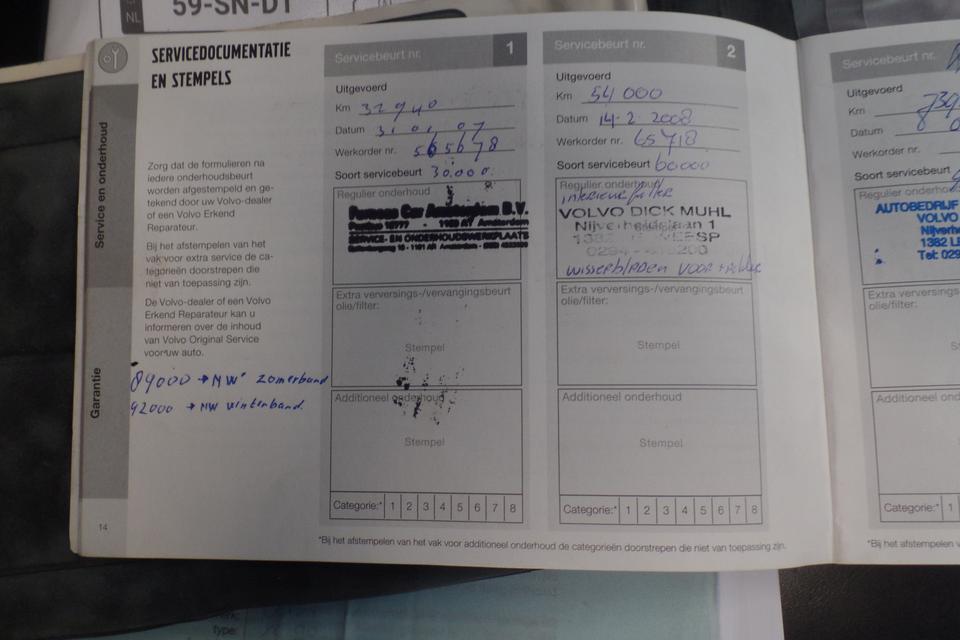 NL
59-SN-DT
SERVICEDOCUMENTATIE
EN STEMPELS
Service en onderhoud
Garantie
Zorg dat de formulieren na
iedere onderhoudsbeurt
worden afgestempeld en ge-
tekend door uw Volvo-dealer
of een Volvo Erkend
Reparateur.
Bij het afstempelen van het
vak voor extra service de ca-
tegorieën doorstrepen die
niet van toepassing zijn.
De Volvo-dealer of een Volvo
Erkend Reparateur kan u
informeren over de inhoud
van Volvo Original Service
voor uw auto.
89000 → NW zomerband
92000 → NW winterband.
14
Servicebeurt nr. 1
Uitgevoerd
Km 32940
Datum 31 01 07
Werkorder nr. 565678
Soort servicebeurt 30.000
Regulier onderhoud
Car Amsterdam B.V.
SERVICE- EN ONDERHOUDSWERKPLAATS
Extra verversings-/vervangingsbeurt
olie/filter:
Stempel
Additioneel onderhoud
Stempel
Categorie:* 1 2 3 4 5 6 7 8
Servicebeurt nr. 2
Uitgevoerd
Km 54000
Datum 14-2 2008
Werkorder nr. 65718
Soort servicebeurt 60.000
Regulier onderhoud
interieurfilter
VOLVO DICK MUHL
Nijverheidslaan 1
1382 WEESP
0294
wisserbladen voor
Extra verversings-/vervangingsbeurt
olie/filter:
Stempel
Additioneel onderhoud
Stempel
Categorie:* 1 2 3 4 5 6 7 8
*Bij het afstempelen van het vak voor additioneel onderhoud de categorieën doorstrepen die niet van toepassing zijn.
Servicebeurt nr.
Uitgevoerd
Km
Datum
Werkorder nr.
Soort servicebeurt
Regulier onderhoud
AUTOBEDRIJF
VOLVO
Nijverh
1382 LE
Tel: 029
Extra verversings-/ve
olie/filter:
Additioneel ond
Categorie:* 1
*Bij het afstempelen v
type: